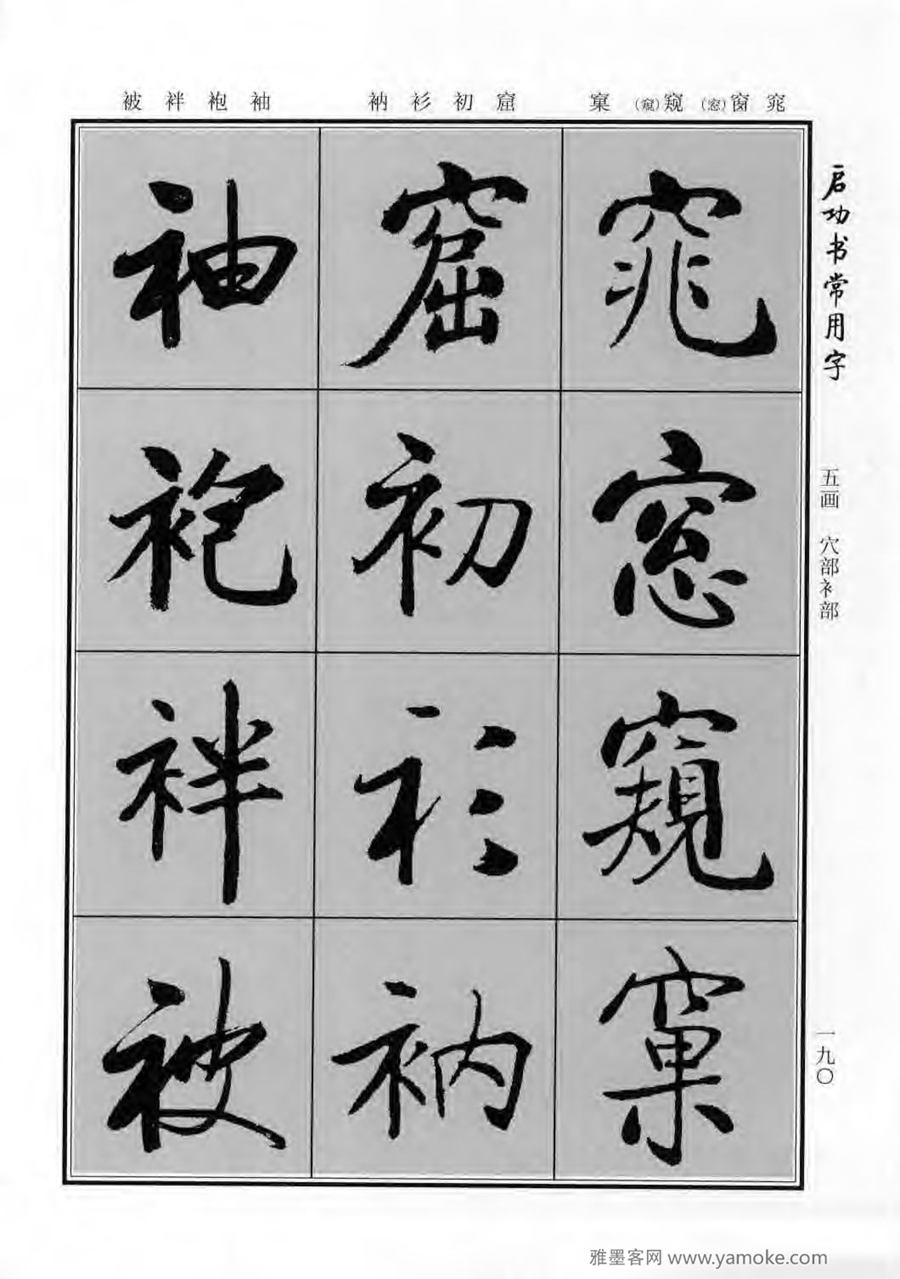 窕窗(窓)窥(窺)窠
窟初衫衲
袖袍袢被
窕
窓
窺
窠
窟
初
衫
衲
袖
袍
袢
被
启功书常用字
五画 穴部衤部
一九〇
雅墨客网 www.yamoke.com